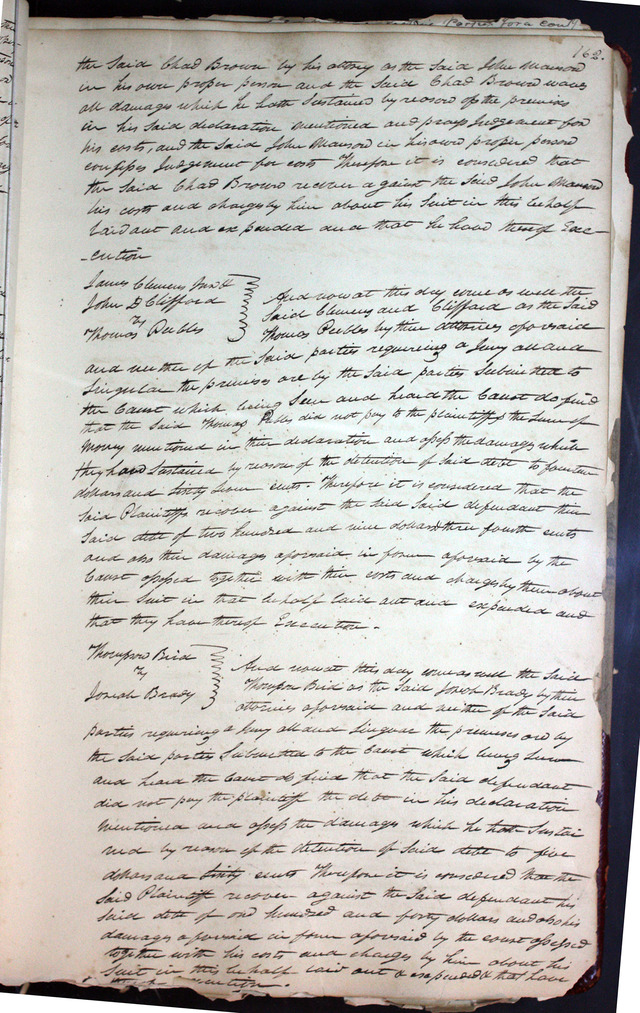 Parties for a Court
162.
the Said Chad Brown by his attorney as the Said John Manson
in his own proper person and the Said Chad Brown waves
all damages which he hath Sustained by reason of the premises
in his Said declaration mentioned and prays Judgement for
his costs, and the Said John Manson in his own proper person
confesses Judgement for costs Therefore it is considered that
the Said Chad Brown recover against the Said John Manson
his costs and charges by him about his Suit in this behalf
laid out and expended and that he have thereof Exe-
-cution
James Clemens Jun &
John D Clifford
vs
Thomas Peebles
And now at this day come as well the
Said Clemens and Clifford as the Said
Thomas Peebles by their attornies aforesaid
and neither of the Said parties requireing a Jury all and
Singular the premises are by the Said parties Submitted to
the Court which being Seen and heard the Court do find
that the Said Thomas Peebles did not pay to the plaintiffs the Sum of
Money mentioned in their declaration and assess the damages which
they have Sustained by reason of the detention of Said debt to fourteen
dollars and Sixty Seven cents. Therefore it is considered that the
Said Plaintiffs recover against the Said defendant their
Said debt of two hundred and nine dollars three fourth cents
and also their damages aforesaid in form aforesaid by the
Court assessed together with their costs and charges by them about
their Suit in that behalf laid out and expended and
that they have thereof Execution.
Thompson Bird
vs
Josiah Brady
And now at this day come as well the Said
Thompson Bird as the Said Joseph Brady by their
attornies aforesaid and neither of the Said
parties requireing a Jury all and Singular the premises are by
the Said parties Submitted to the Court which being Seen
and heard the Court do find that the Said defendant
did not pay the plaintiff the debt in his declaration
Mentioned and assess the damages which he hath Sustai
ned by reason of the detention of Said debt to five
dollars and Sixty cents Therefore it is considered that the
Said Plaintiff recover against the Said defendant his
Said debt of one hundred and forty dollars and also his
damages aforesaid in form aforesaid by the court assessed
together with his costs and charges by him about his
Suit in this behalf laid out & expended & that have
thereof execution.